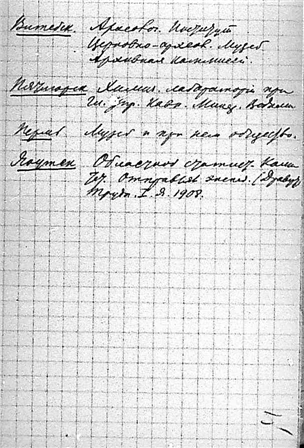 Витебск. Археолог. Институт
Церковно-археол. Музей
Архивная комиссия.
Пятигорск Химич. лаборатория при
Гл. упр. Кавк. Минер. Водами
Пермь Музей и при нем общество
Якутск Областной статист. Коми
тет. отправлен экземп.
Труды. I. Я. 1908.
I